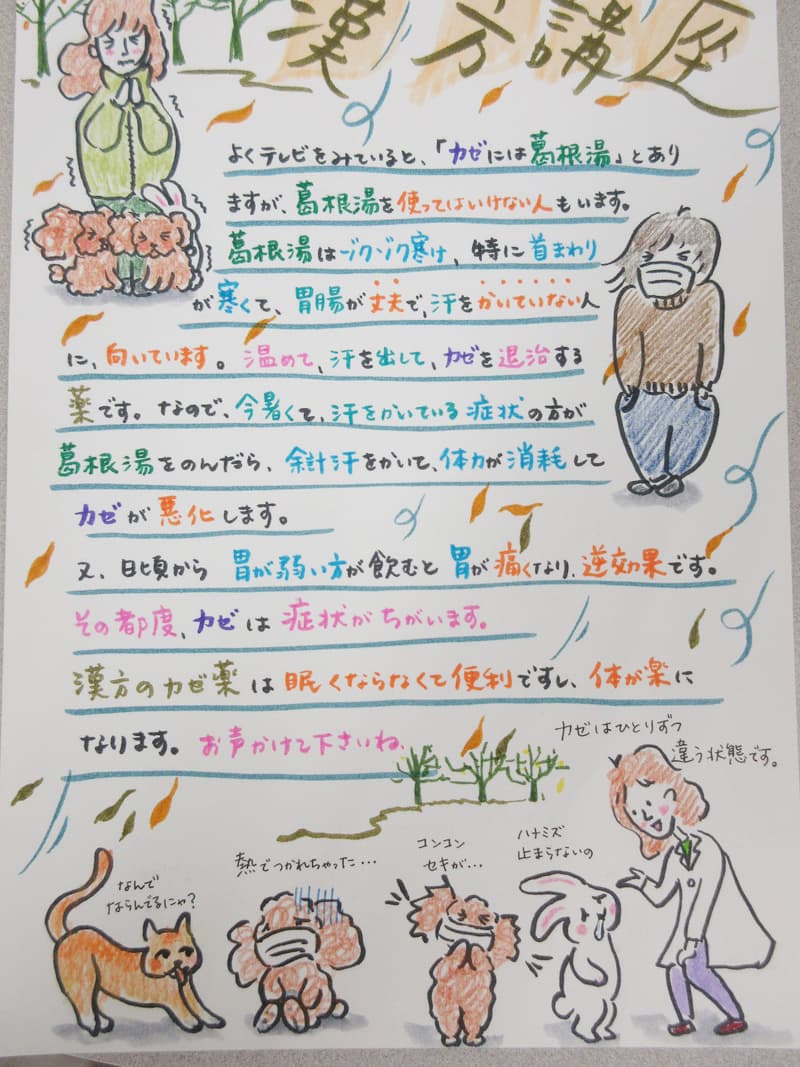 漢方講座
よくテレビをみていると、「カゼには葛根湯」とあり
ますが、葛根湯を使ってはいけない人もいます。
葛根湯はゾクゾク寒け、特に首まわり
が寒くて、胃腸が丈夫で、汗をかいていない人
に、向いています。温めて、汗を出して、カゼを退治する
薬です。なので、今暑くて、汗をかいている症状の方が
葛根湯をのんだら、余計汗をかいて、体力が消耗して
カゼが悪化します。
又、日頃から胃が弱い方が飲むと胃が痛くなり、逆効果です。
その都度、カゼは症状がちがいます。
漢方のカゼ薬は眠くならなくて便利ですし、体が楽に
なります。お声かけて下さいね、
カゼはひとりずつ
違う状態です。
なんで
ならんでるにゃ?
熱でつかれちゃった…
コンコン
セキが…
ハナミズ
止まらないの